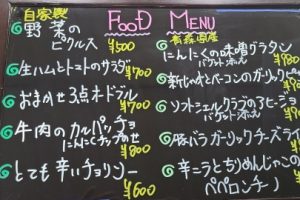 自家製
FOOD MENU
野菜の
ピクルス
¥500
生ハムとトマトのサラダ
¥700
おまかせ3点オードブル
¥700
牛肉のカルパッチョ
にんにくチップのせ
¥800
とても辛いチョリソー
¥600
青森国産
にんにくの味噌グラタン
バケット添え
¥980
新じゃがとベーコンのガーリック
ソフトシェルクラブのアヒージョ
バケット添え
豚バラガーリックチーズライ
辛ニラとちりめんじゃこの
ペペロンチーノ